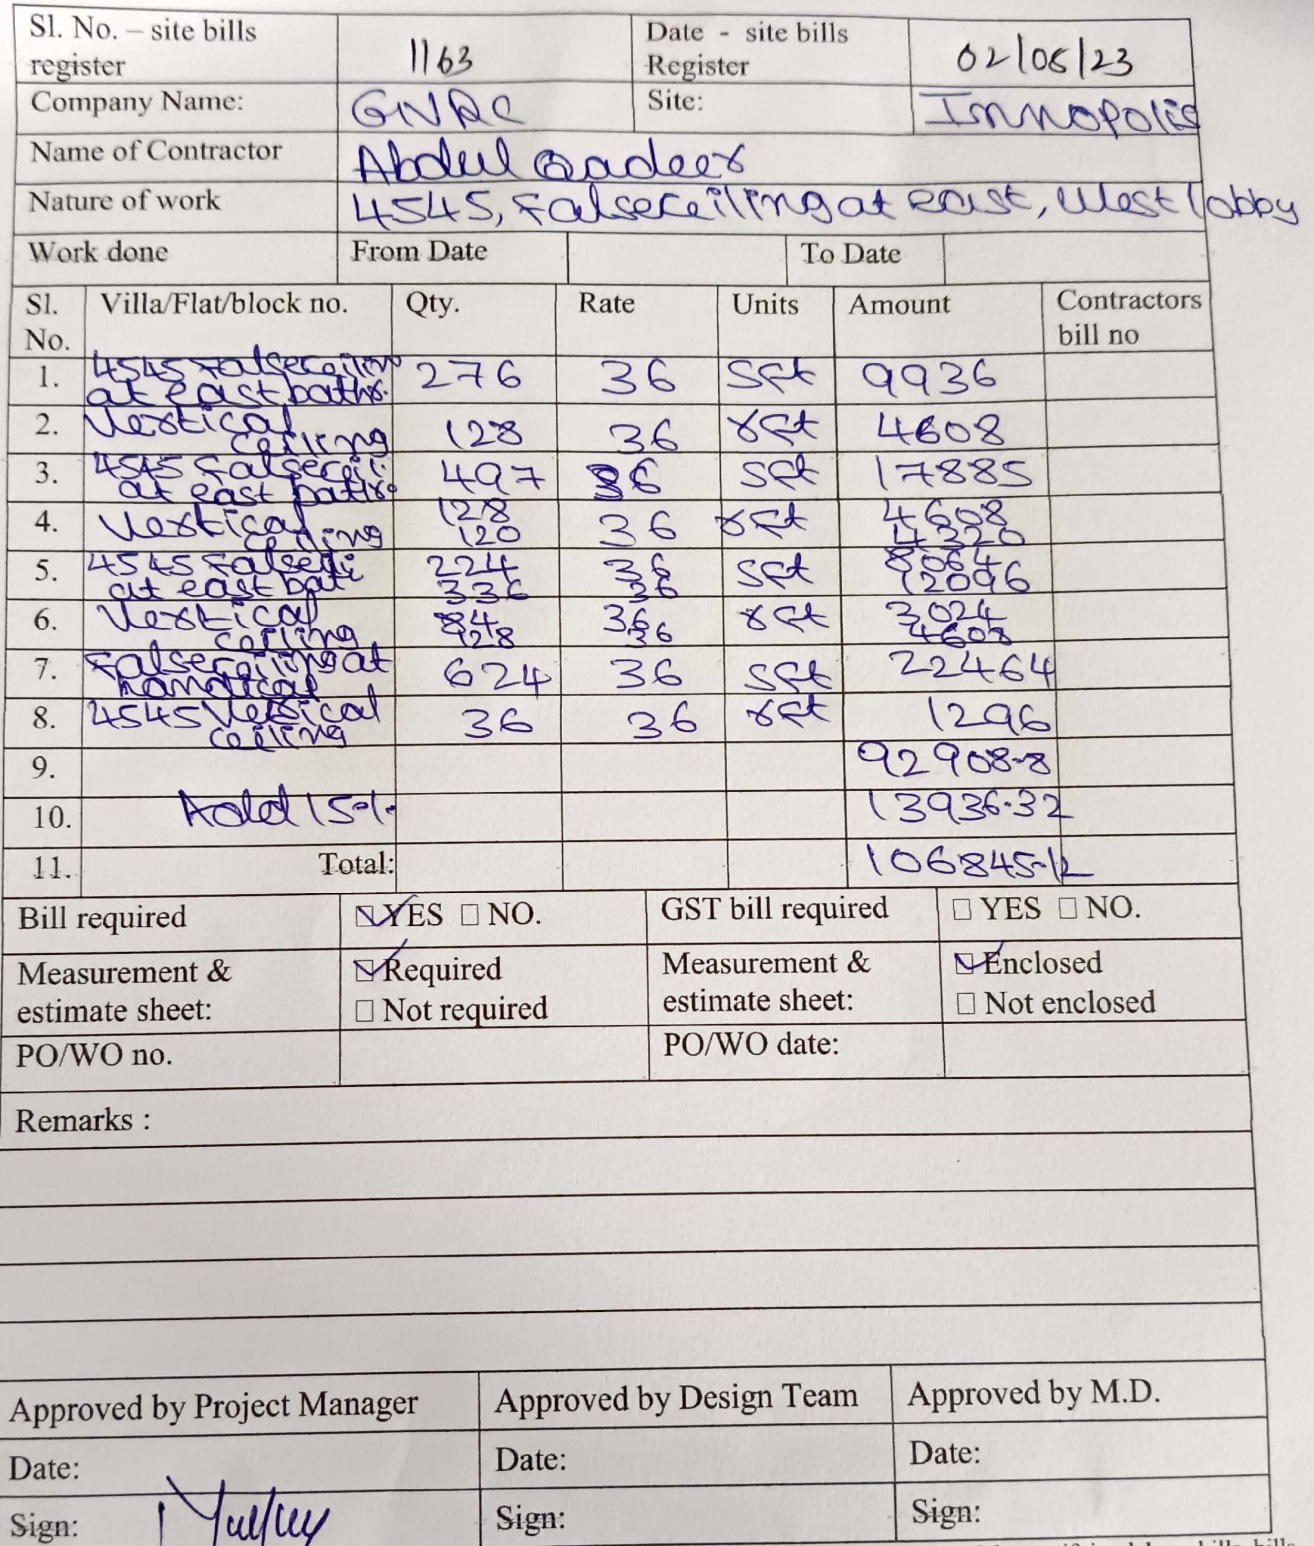 Sl. No. – site bills register 1163 Date - site bills Register 02/05/23
Company Name: GNRC Site: Innopolis
Name of Contractor Abdul Qadeer
Nature of work 4545, Falseceiling at east, West lobby
Work done From Date To Date
Sl. No. Villa/Flat/block no. Qty. Rate Units Amount Contractors bill no
1. 4545 Falseceiling at east baths. 276 36 Sft 9936
2. Vertical ceiling 128 36 rft 4608
3. 4545 Falseceili at east baths 497 36 Sft 17885
4. Vertical ceiling 128 120 36 rft 4608 4320
5. 4545 Falseceili at east bath 224 336 36 36 Sft 8064 12096
6. Vertical ceiling 84 128 36 36 rft 3024 4608
7. Falseceiling at handicap 624 36 Sft 22464
8. 4545 Vertical ceiling 36 36 rft 1296
9. 92908-8
10. Add 15-/. 13936.32
11. Total: 106845-12
Bill required YES NO. GST bill required YES NO.
Measurement & estimate sheet: Required Not required Measurement & estimate sheet: Enclosed Not enclosed
PO/WO no. PO/WO date:
Remarks :
Approved by Project Manager Approved by Design Team Approved by M.D.
Date: Date: Date:
Sign: Sign: Sign: